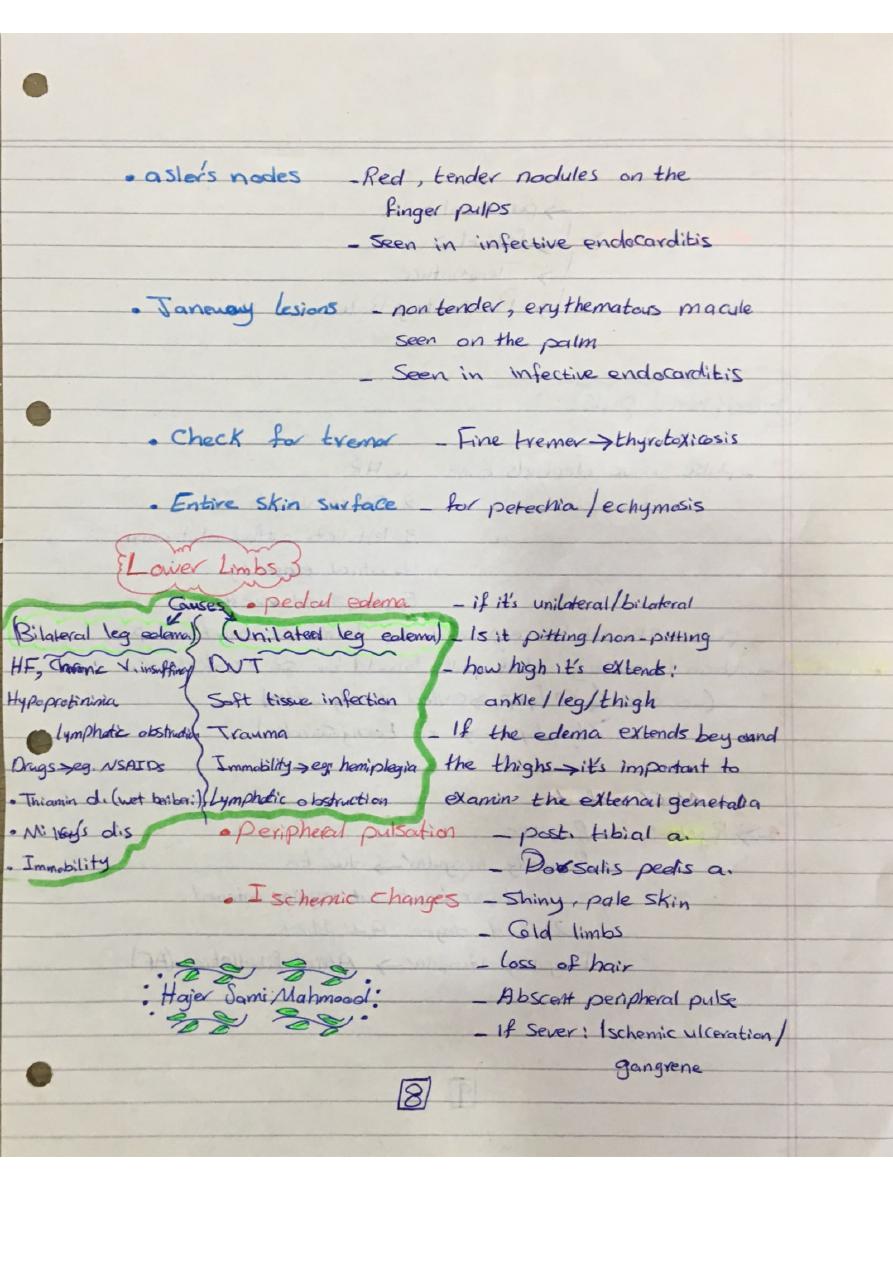 • asler's nodes - Red, tender nodules on the
finger pulps
- Seen in infective endocarditis
• Janeway lesions - non tender, erythematous macule
seen on the palm
- Seen in infective endocarditis
• Check for tremor - Fine tremer → thyrotoxicosis
• Entire skin surface - for petechia / echymosis
Lower Limbs
Causes
• pedal edema - if it's unilateral/bilateral
- Is it pitting/non-pitting
- how high it's extends:
ankle/leg/thigh
- If the edema extends beyoand
the thighs → it's important to
examin the external genetalia
Bilateral leg edema
HF, Chronic V. insuffiny
Hypoprotininia
lymphatic obstruction
Drugs → eg. NSAIDs
• Thiamin d. (wet beriberi)
• Milroy's dis
• Immobility
Unilateral leg edema
DVT
Soft tissue infection
Trauma
Immobility → eg. hemiplegia
Lymphatic obstruction
• Peripheral pulsation - post. tibial a.
- Dorsalis pedis a.
• Ischemic changes - Shiny, pale skin
- Cold limbs
- loss of hair
- Abscent peripheral pulse
- If sever: Ischemic ulceration/
gangrene
Hajer Sami Mahmood
8